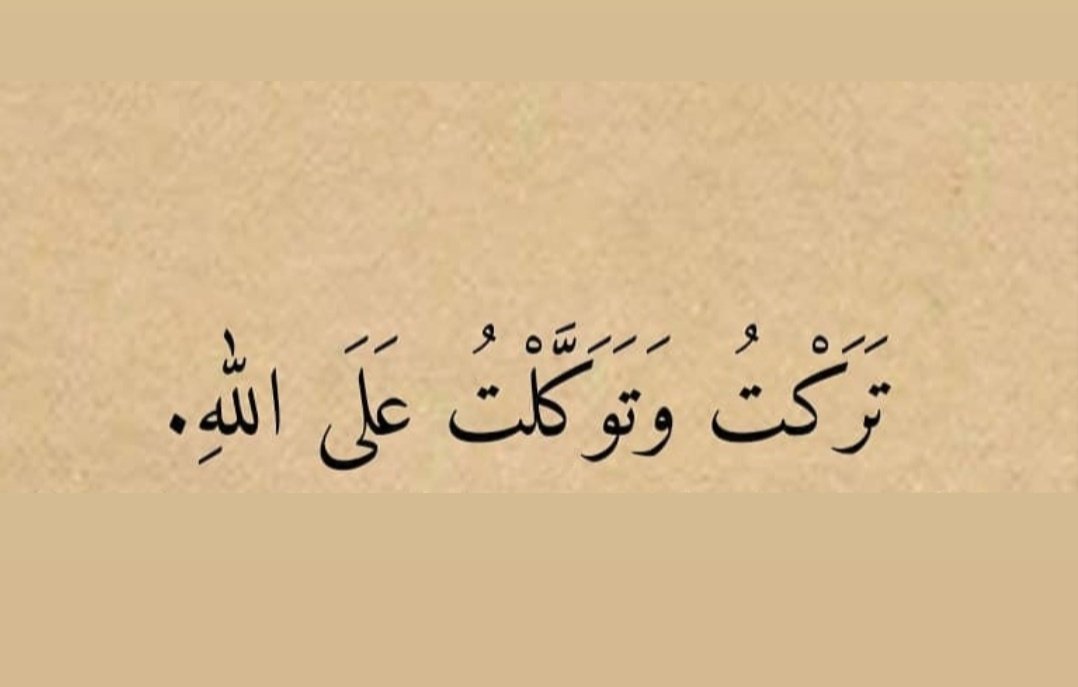 تَرَكْتُ وَتَوَكَّلْتُ عَلَى اللّٰهِ.